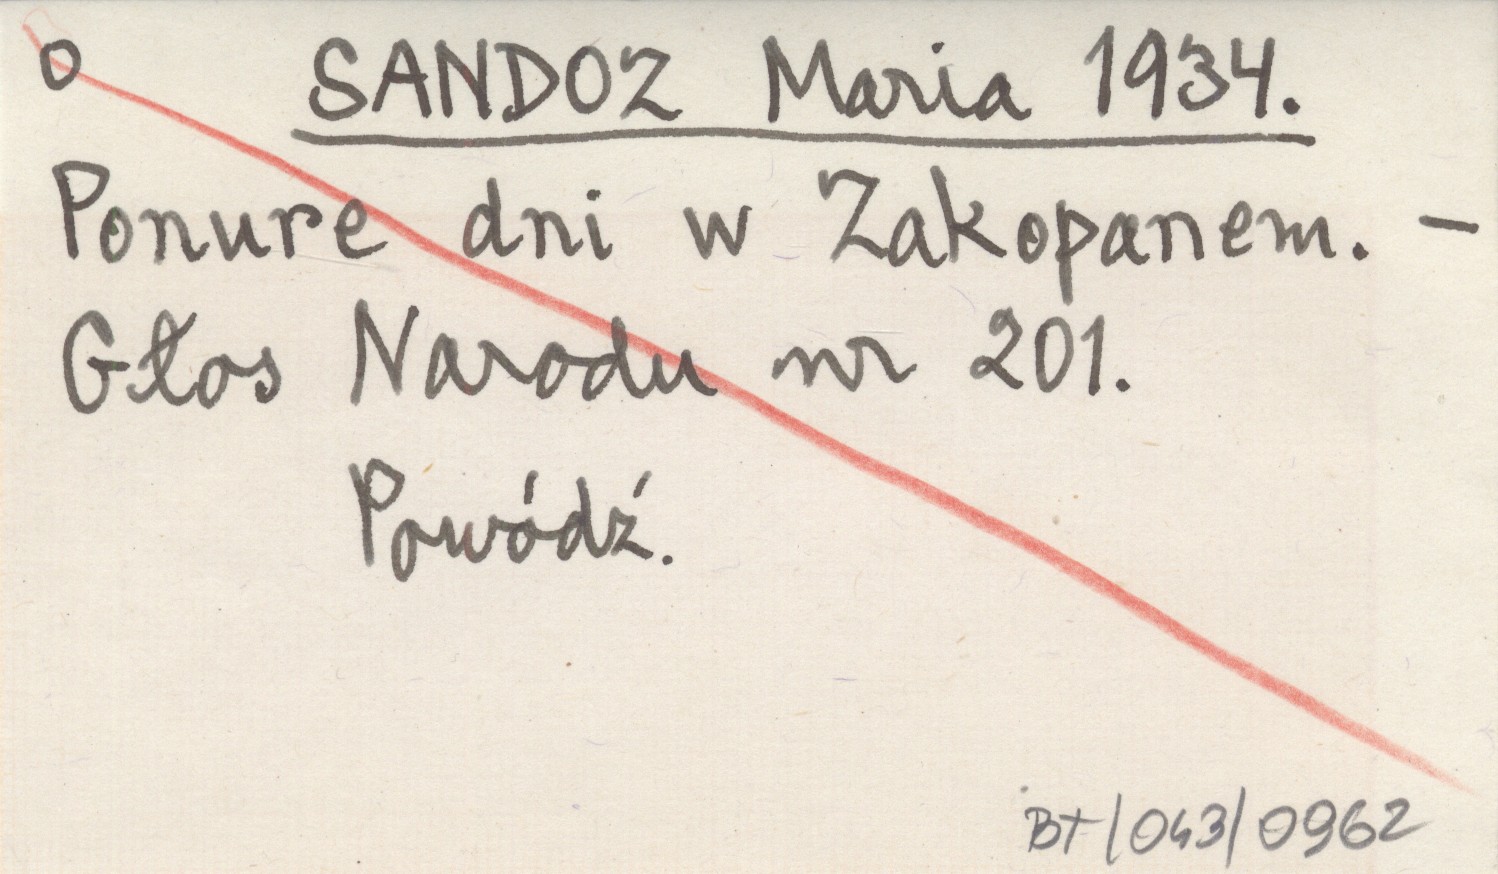 o SANDOZ Maria 1934.
Ponure dni w Zakopanem. –
Głos Narodu nr 201.
Powódź.
BT/043/0962